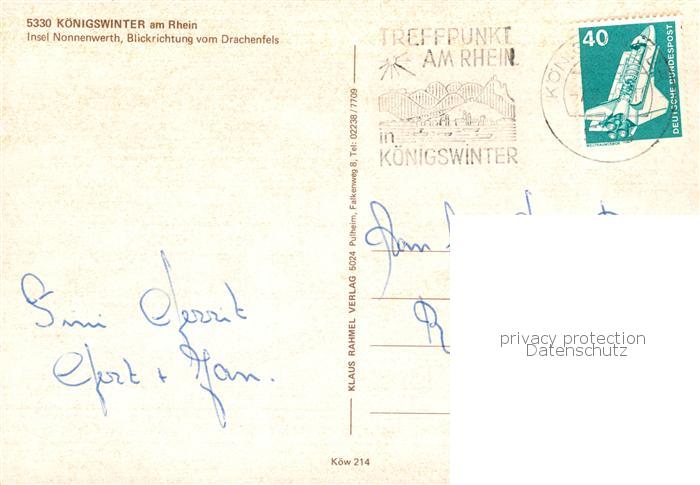 5330 KÖNIGSWINTER am Rhein
Insel Nonnenwerth, Blickrichtung vom Drachenfels
TREFFPUNKT
AM RHEIN
in
KÖNIGSWINTER
40
DEUTSCHE BUNDESPOST
KLAUS RAHMEL VERLAG 5024 Pulheim, Falkenweg 8, Tel: 02238/7709
Gerrit
Gert + Jan.
privacy protection
Datenschutz
Köw 214